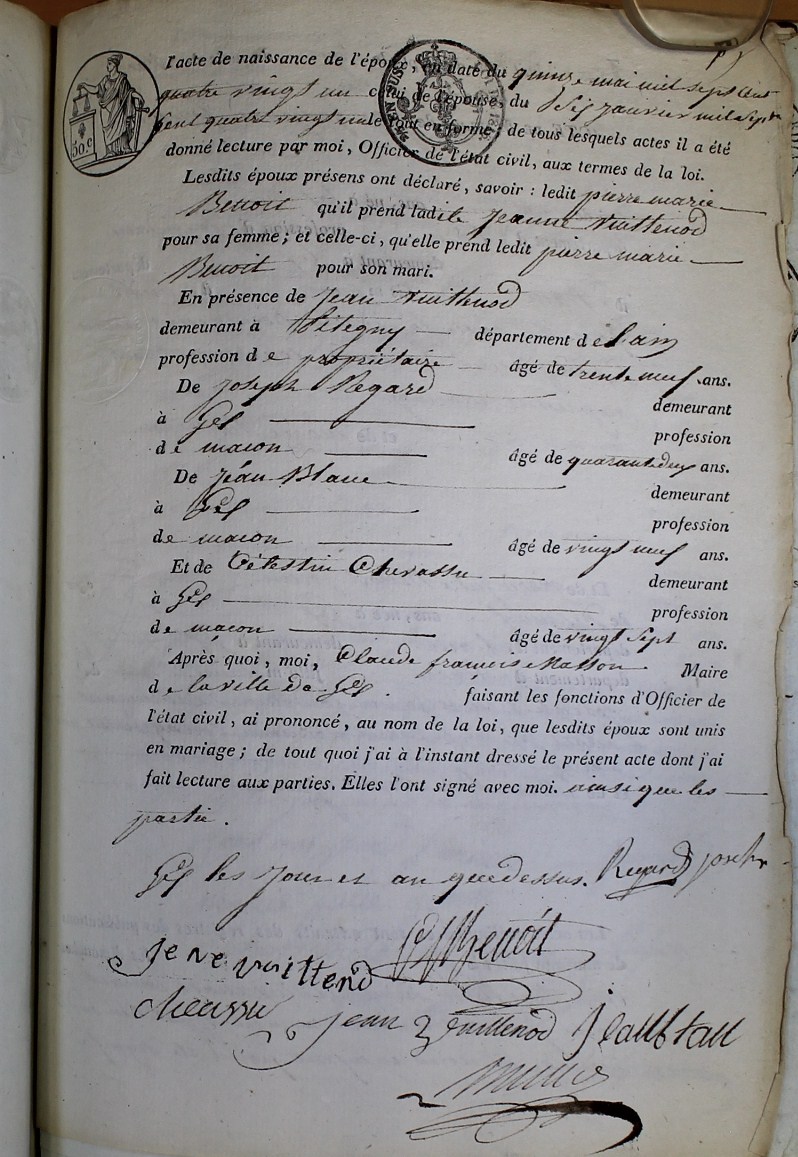 l'acte de naissance de l'époux, en date du quinze mai mil sept cent
quatre vingt un celui de l'épouse, du six janvier mil sept
cent quatre vingt onze tout en forme; de tous lesquels actes il a été
donné lecture par moi, Officier de l'état civil, aux termes de la loi.
Lesdits époux présens ont déclaré, savoir : ledit pierre marie
Benoit qu'il prend ladite Jeanne Vuittenod
pour sa femme; et celle-ci, qu'elle prend ledit pierre marie
Benoit pour son mari.
En présence de Jean Vuittenod
demeurant à département de l'ain
profession de propriétaire âgé de trente neuf ans.
De Joseph Regard demeurant
à Gex profession
de macon âgé de quarante deux ans.
De Jean Blanc demeurant
à Gex profession
de macon âgé de vingt neuf ans.
Et de Célestin Chevassu demeurant
à Gex profession
de macon âgé de vingt sept ans.
Après quoi, moi, Claude françois Maire
de la ville de Gex. faisant les fonctions d'Officier de
l'état civil, ai prononcé, au nom de la loi, que lesdits époux sont unis
en mariage; de tout quoi j'ai à l'instant dressé le présent acte dont j'ai
fait lecture aux parties. Elles l'ont signé avec moi. ainsi que les
partie.
Gex les Jour et an que dessus. Regard joseph
Benoit
Jene vuittend
Jean Vuittenod
50 c